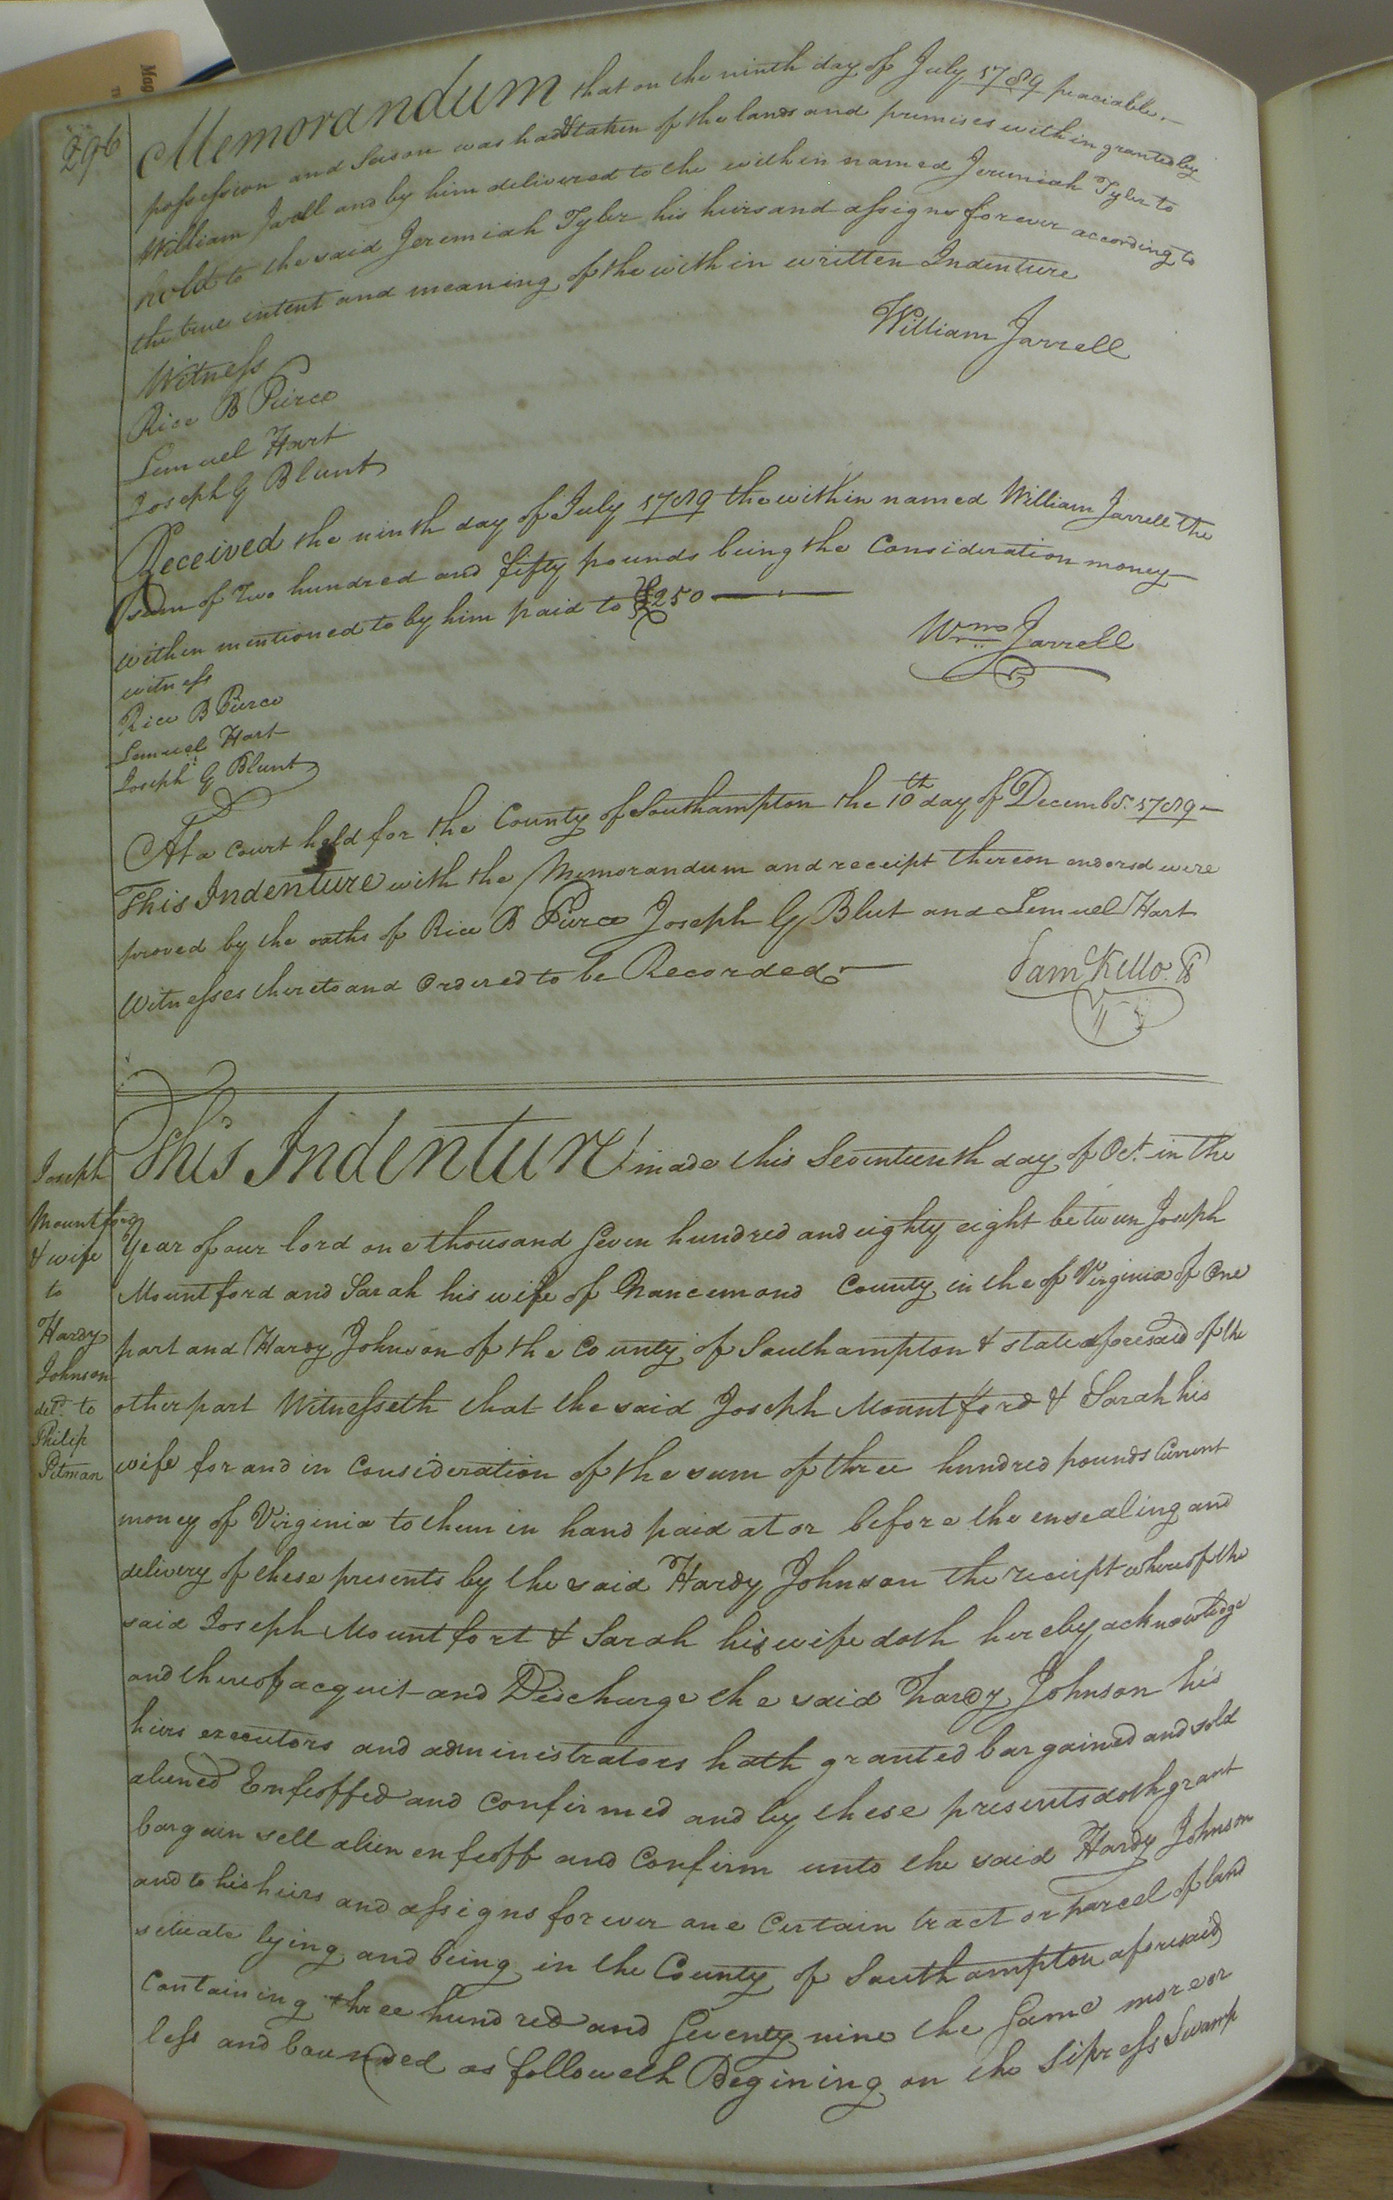 296
Memorandum that on the ninth day of July 1789 peaciable
possession and Seison was had & taken of the lands and premises within granted by
William Jarell and by him delivered to the within named Jeremiah Tyler to
hold to the said Jeremiah Tyler his heirs and assigns forever according to
the true intent and meaning of the within written Indenture
William Jarrell
Witness
Rice B Pierce
Lemuel Hart
Joseph G Blunt
Received the ninth day of July 1789 the within named William Jarrell the
sum of Two hundred and fifty pounds being the Consideration money
within mentioned to by him paid to £250
Wm Jarrell
witness
Rice B Pierce
Lemuel Hart
Joseph G Blunt
At a Court held for the County of Southampton the 10th day of Decembr. 1789
This Indenture with the Memorandum and receipt thereon endorsd were
proved by the oaths of Rice B Pierce Joseph G Blut and Lemuel Hart
Witnesses thereto and Ordered to be Recorded
Sam Kello
Joseph
Mountford
& wife
to
Hardy
Johnson
deld. to
Philip
Pitman
This Indenture made this Seventeenth day of Oct. in the
Year of our lord one thousand Seven hundred and eighty eight between Joseph
Mountford and Sarah his wife of Nancemond County in the of Virginia of One
part and Hardy Johnson of the County of Southampton & state aforesaid of the
other part Witnesseth that the said Joseph Mountford & Sarah his
wife for and in Consideration of the sum of three hundred pounds Current
money of Virginia to them in hand paid at or before the ensealing and
delivery of these presents by the said Hardy Johnson the receipt whereof the
said Joseph Mountfort & Sarah his wife doth hereby acknowledge
and thereof acquit and Discharge the said Hardy Johnson his
heirs executors and administrators hath granted bargained and sold
aliened Enfeoffed and Confirmed and by these presents doth grant
bargain sell alien enfeoff and Confirm unto the said Hardy Johnson
and to his heirs and assigns forever one Certain tract or parcel of land
situate lying and being in the County of Southampton aforesaid
Containing three hundred and Seventy nine the Same more or
less and bounded as followeth Begining on the Sipress Swamp